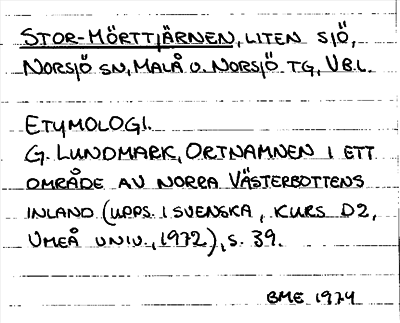 STOR-MÖRTTJÄRNEN, LITEN SJÖ,
NORSJÖ SN, MALÅ O. NORSJÖ TG, VB.L.
ETYMOLOGI.
G. LUNDMARK, ORTNAMNEN I ETT
OMRÅDE AV NORRA VÄSTERBOTTENS
INLAND (UPPS. I SVENSKA, KURS D2,
UMEÅ UNIV., 1972), S. 39.
BME 1974